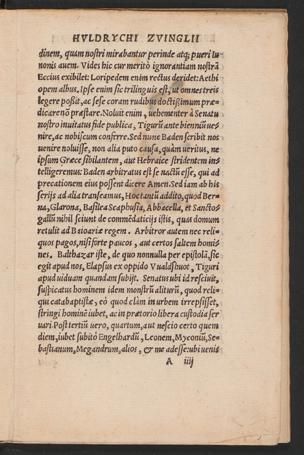 HVLDRYCHI ZVINGLII
dinem, quam nostri mirabantur perinde atq; pueri lu
nonis auem. Vides hic cur meritò ignorantiam nostrã
Eccius exibilet: Loripedem enim rectus deridet: Aethi
opem albus. Ipse enim sic trilinguis est, ut omnes treis
legere possit, ac sese coram rudibus doctissimum præ-
dicarenõ præstare. Noluit enim, uehementer à Senatu
nostro inuitatus fide publica, Tigurũ ante bienniũ ue-
nire, ac nobiscum conferre. Sed nunc Baden scribit nos
uenire noluisse, non alia puto causa, quàm ueritus, ne
ipsum Græce sibilantem, aut Hebraice stridentem in-
telligeremus: Baden arbitratus est se nactũ esse, qui ad
precationem eius possent dicere Amen. Sed iam ab his
serijs ad alia transeamus, Hoc tantũ addito, quod Ber-
na, Glarona, Basilea Scaphusia, Abbacella, et Sanctos-
gallũ nihil sciunt de commẽdaticijs istis, quas domum
retulit ad Baioariæ regem. Arbitror autem nec reli-
quos pagos, nisi forte paucos, aut certos saltem homi-
nes. Balthazar iste, de quo nonnulla per epistolã, sic
egit apud nos, Elapsus ex oppido Vualdshuot, Tiguri
apud uiduam quandam subijt. Senatus ubi id resciuit,
suspicatus hominem idem monstrũ aliturũ, quod reli-
qui catabaptistæ, eò quod clàm in urbem irrepsisset,
stringi hominẽ iubet, ac in prætorio libera custodia ser
uari Post tertiũ uero, quartum, aut nescio certo quem
diem, iubet subitò Engelhardũ, Leonem, Myconiũ, Se-
bastianum, Megandrum, alios, & me adesse: ubi uenis
A iiij